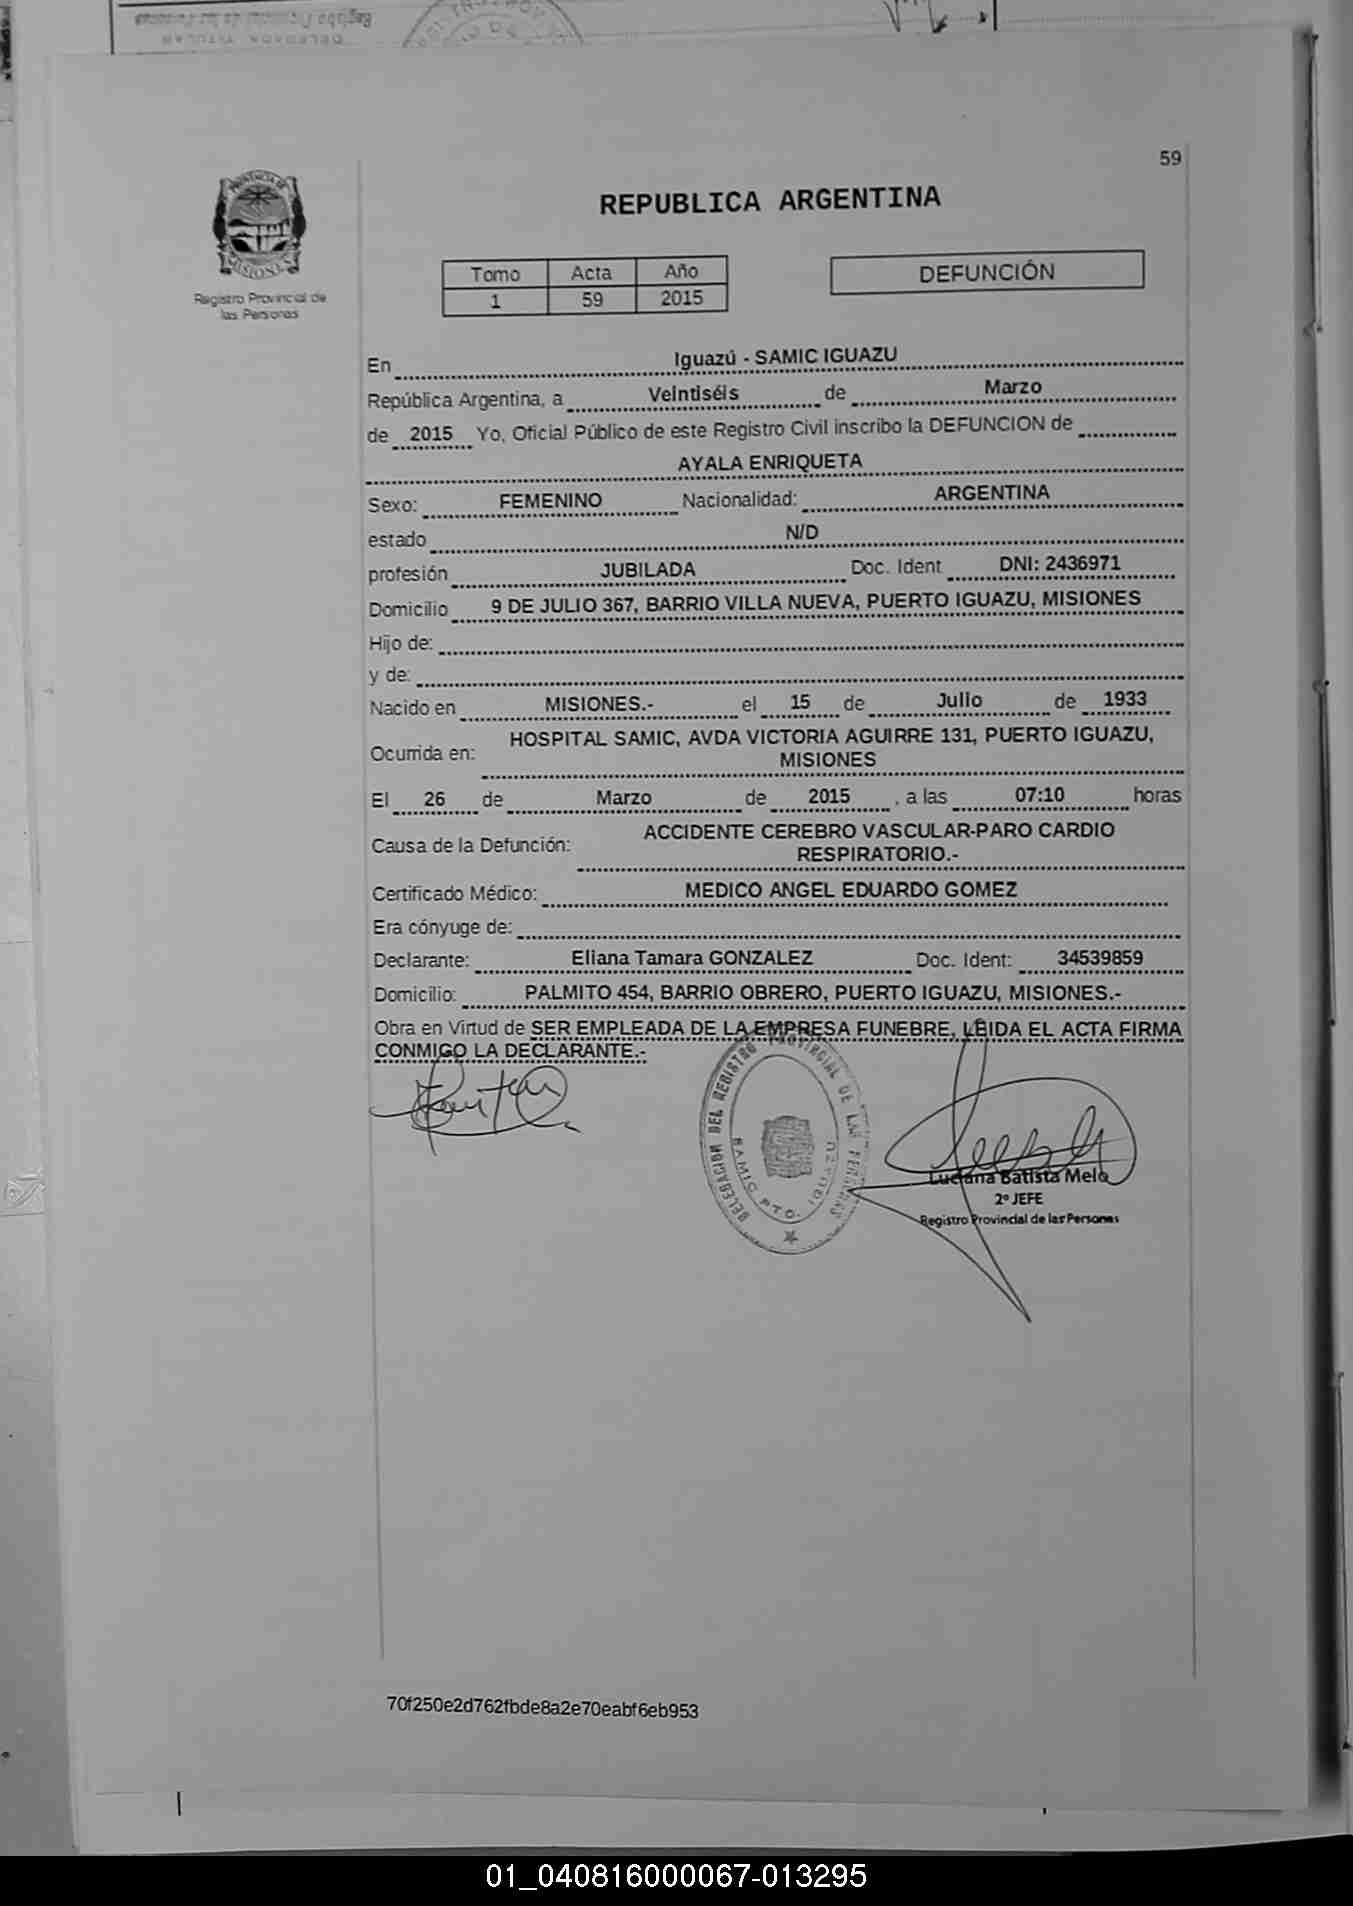 59
REPUBLICA ARGENTINA
PROVINCIA DE
MISIONES
Registro Provincial de
las Personas
Tomo Acta Año
1 59 2015
DEFUNCIÓN
En Iguazú - SAMIC IGUAZU
República Argentina, a Veintiséis de Marzo
de 2015 Yo, Oficial Público de este Registro Civil inscribo la DEFUNCION de
AYALA ENRIQUETA
Sexo: FEMENINO Nacionalidad: ARGENTINA
estado N/D
profesión JUBILADA Doc. Ident DNI: 2436971
Domicilio 9 DE JULIO 367, BARRIO VILLA NUEVA, PUERTO IGUAZU, MISIONES
Hijo de:
y de:
Nacido en MISIONES.- el 15 de Julio de 1933
Ocurrida en: HOSPITAL SAMIC, AVDA VICTORIA AGUIRRE 131, PUERTO IGUAZU,
MISIONES
El 26 de Marzo de 2015 , a las 07:10 horas
Causa de la Defunción: ACCIDENTE CEREBRO VASCULAR-PARO CARDIO
RESPIRATORIO.-
Certificado Médico: MEDICO ANGEL EDUARDO GOMEZ
Era cónyuge de:
Declarante: Eliana Tamara GONZALEZ Doc. Ident: 34539859
Domicilio: PALMITO 454, BARRIO OBRERO, PUERTO IGUAZU, MISIONES.-
Obra en Virtud de SER EMPLEADA DE LA EMPRESA FUNEBRE, LEIDA EL ACTA FIRMA
CONMIGO LA DECLARANTE.-
DELEGACION DEL REGISTRO PROVINCIAL DE LAS PERSONAS
SAMIC PTO. IGUAZU
Luciana Batista Melo
2º JEFE
Registro Provincial de las Personas
70f250e2d762fbde8a2e70eabf6eb953
01_040816000067-013295